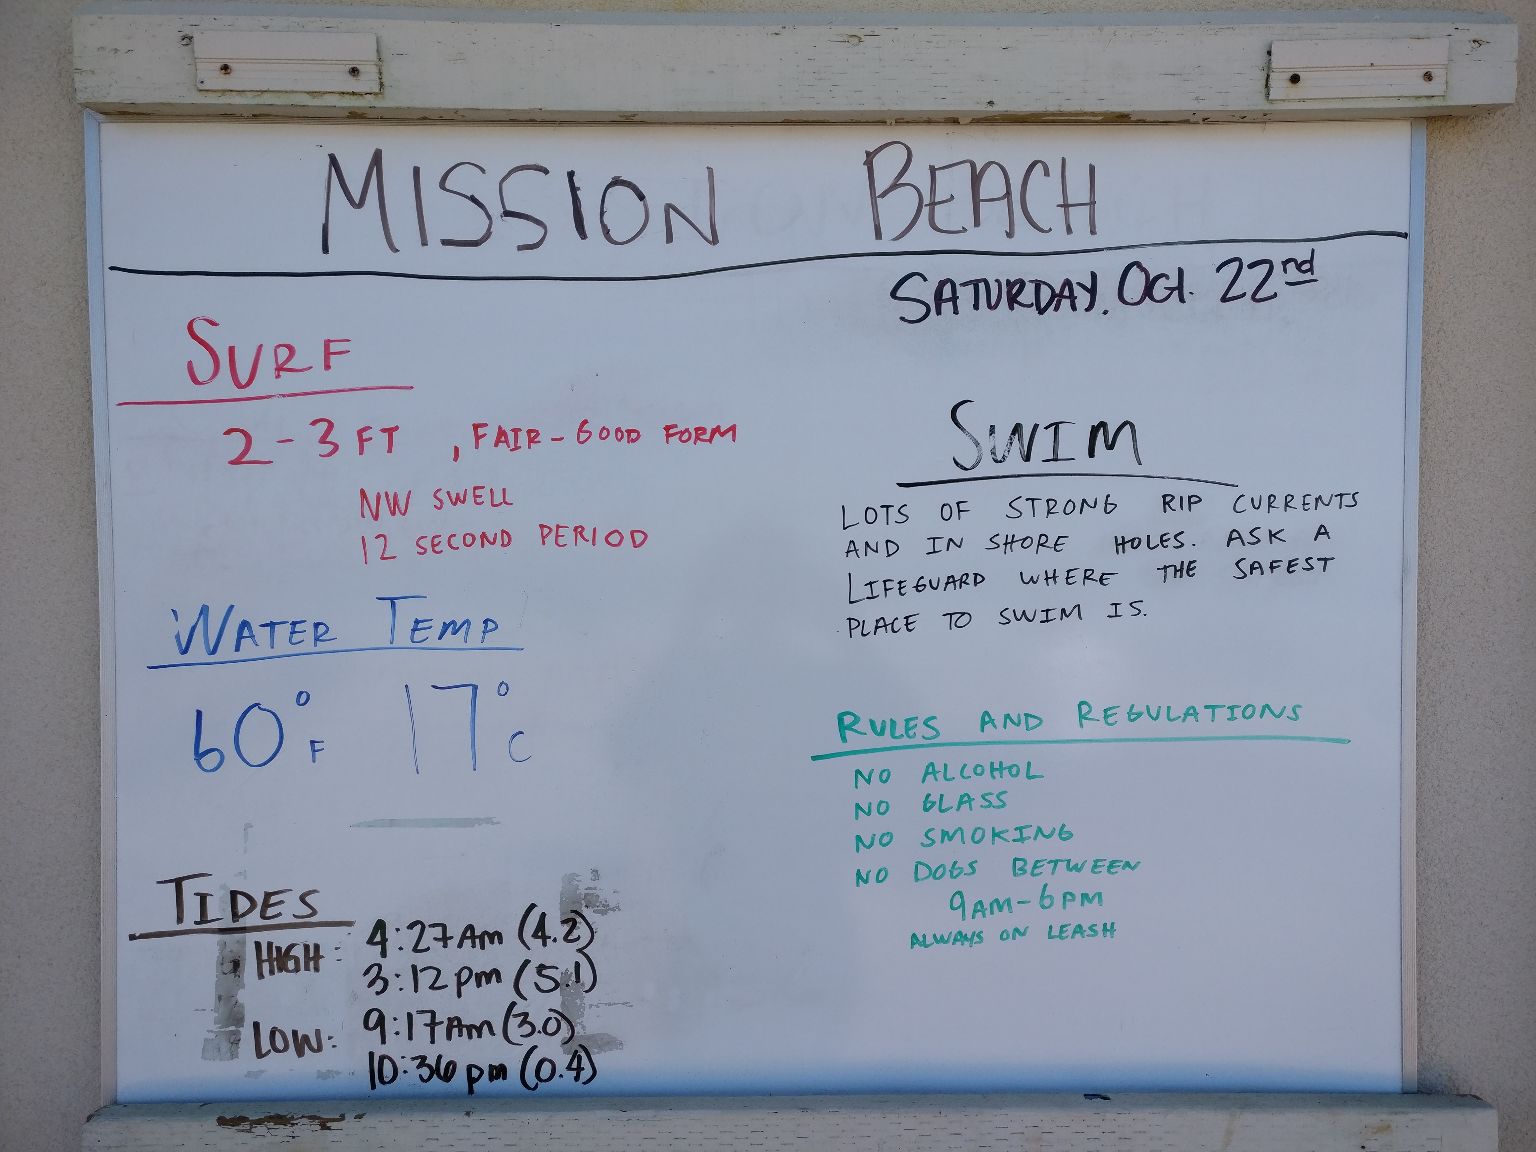 MISSION BEACH
SATURDAY. OCT. 22nd
SURF
2-3 FT , FAIR-GOOD FORM
NW SWELL
12 SECOND PERIOD
WATER TEMP
60°F 17°C
TIDES
HIGH: 4:27 AM (4.2)
3:12 pm (5.1)
LOW: 9:17 AM (3.0)
10:36 pm (0.4)
SWIM
LOTS OF STRONG RIP CURRENTS
AND IN SHORE HOLES. ASK A
LIFEGUARD WHERE THE SAFEST
PLACE TO SWIM IS.
RULES AND REGULATIONS
NO ALCOHOL
NO GLASS
NO SMOKING
NO DOGS BETWEEN
9AM-6PM
ALWAYS ON LEASH